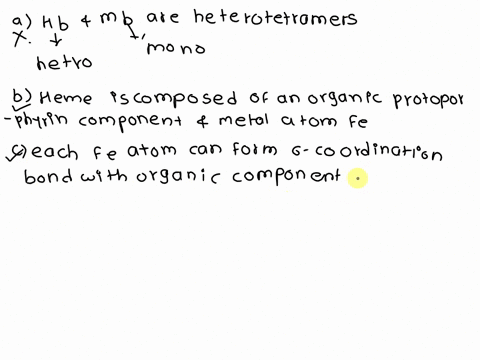 a) Hb & mb are heterotetramers
X.
hetro
mono
b) Heme is composed of an organic protopor
-phyrin component & metal atom Fe
c) each Fe atom can form 6-coordination
bond with organic component